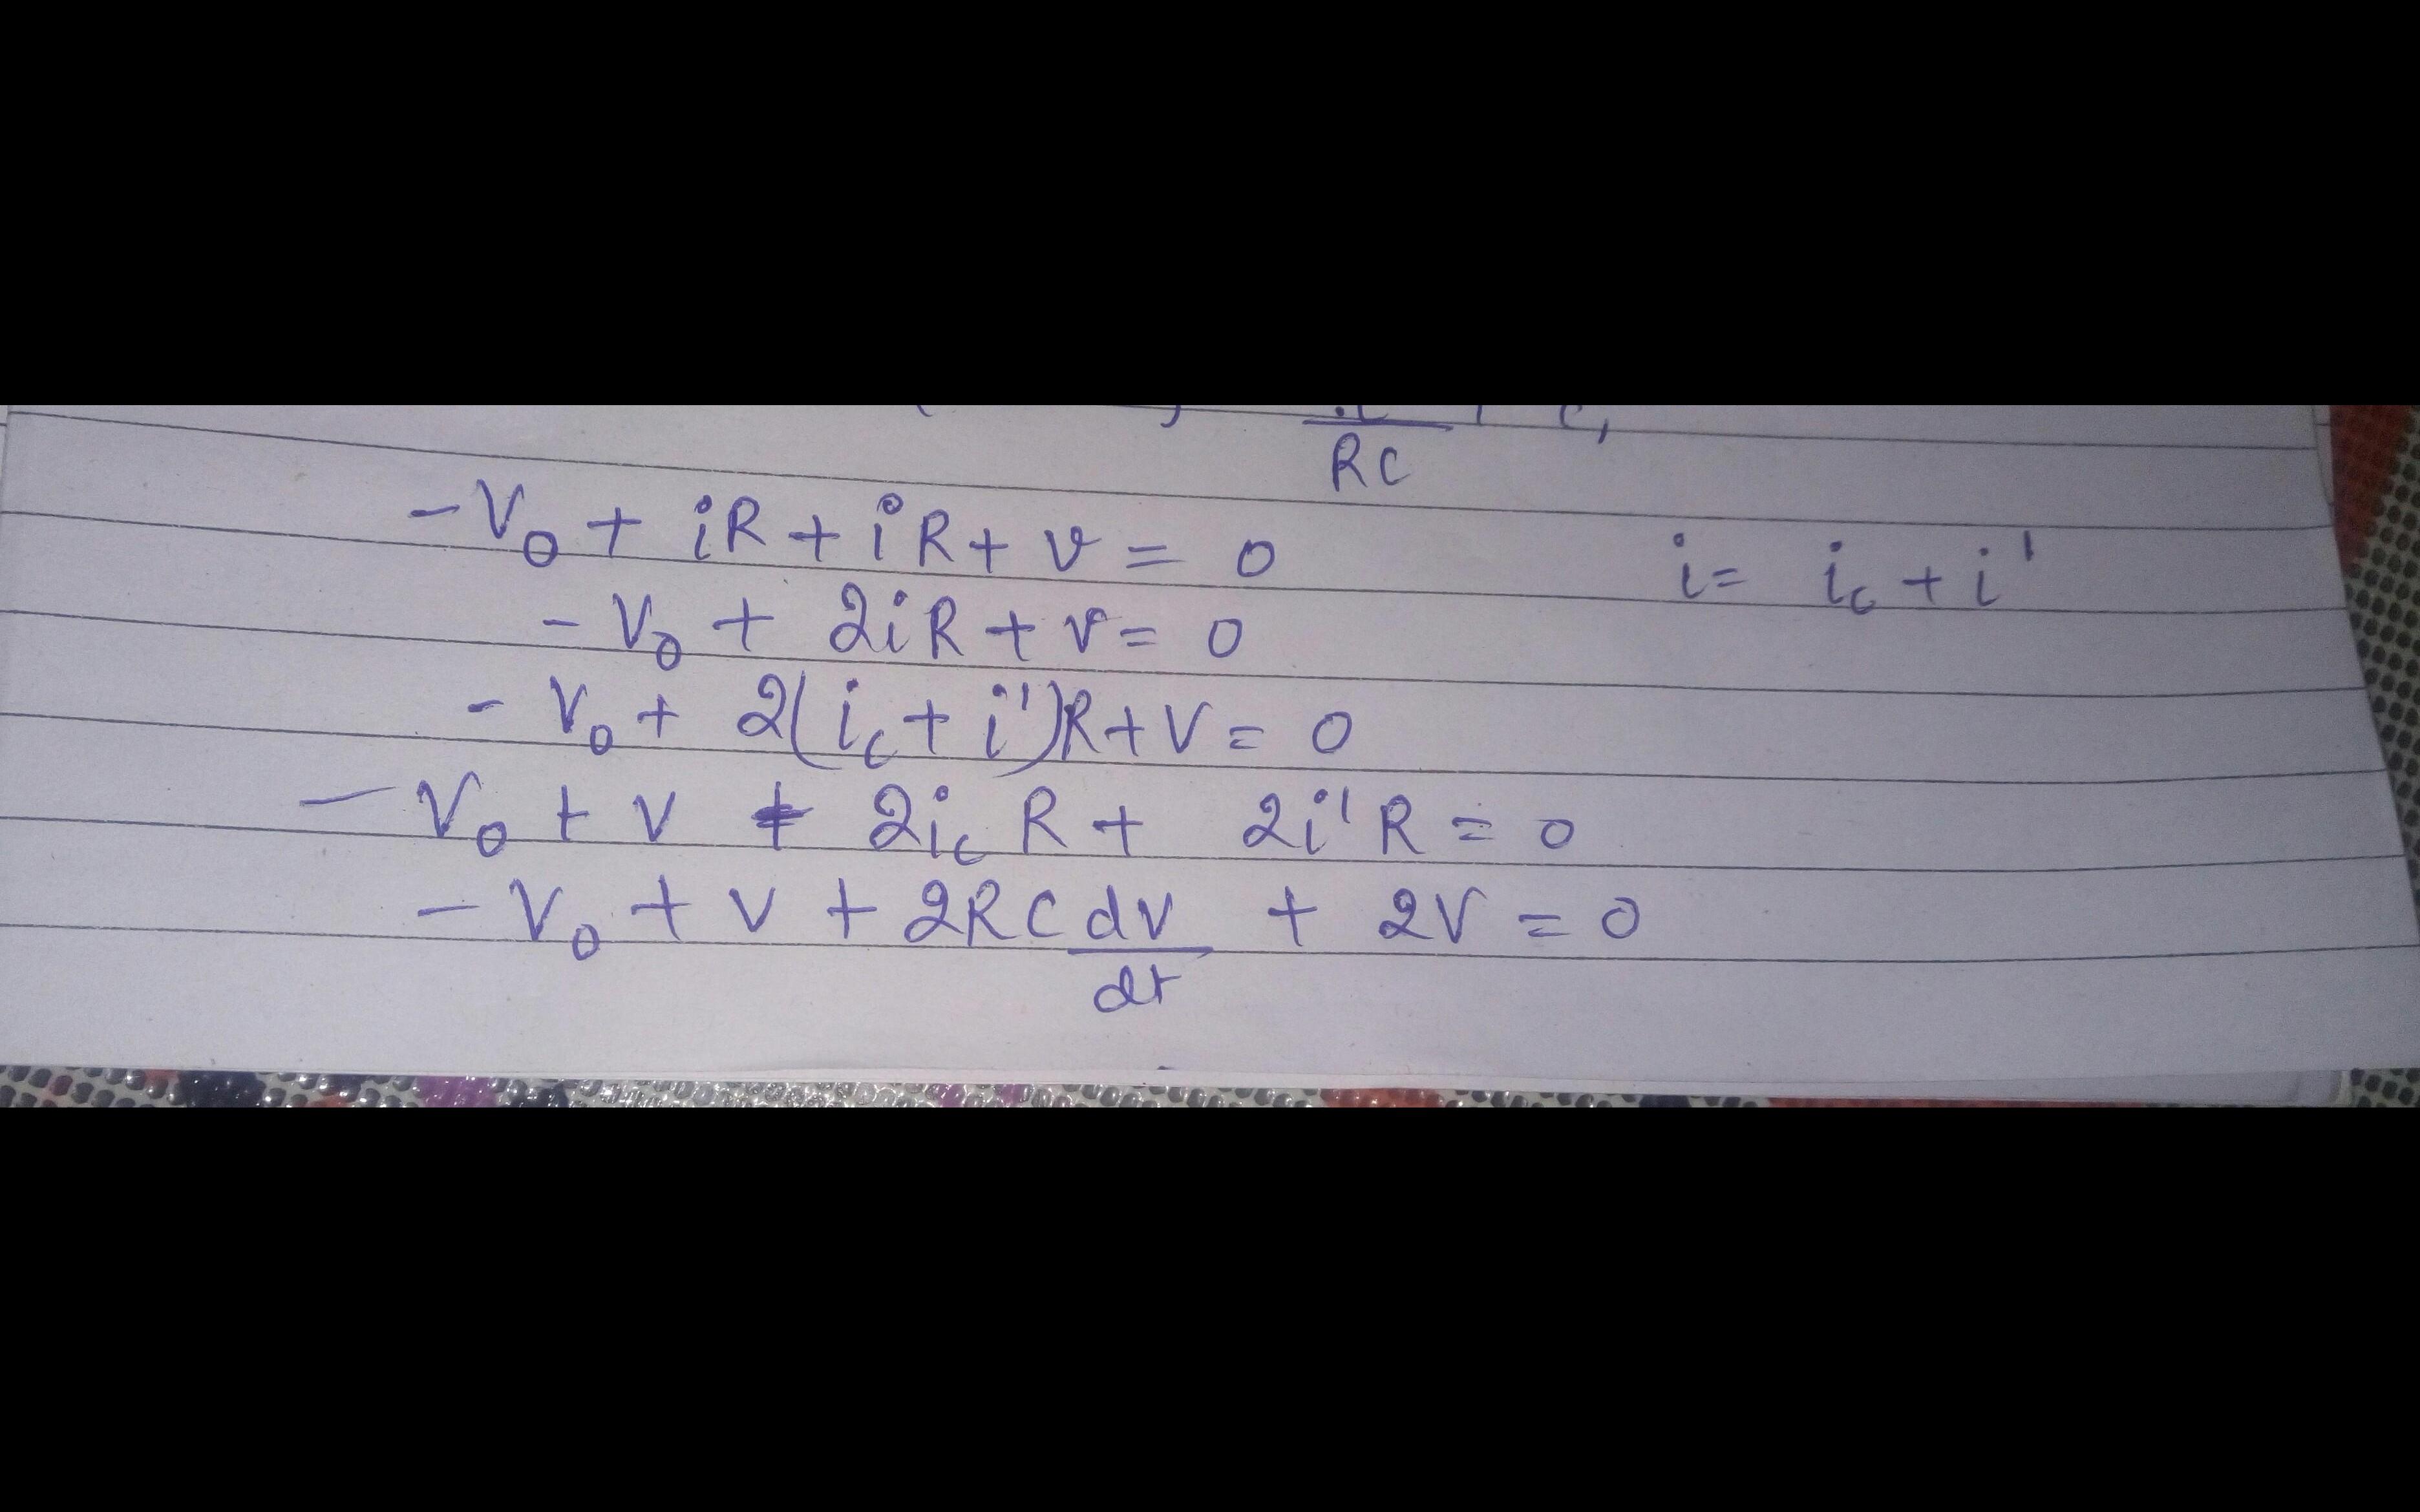 RC
-V₀ + iR + iR + v = 0 i = i_c + i'
- V₀ + 2iR + v = 0
- V₀ + 2(i_c + i')R + V = 0
- V₀ + V + 2i_c R + 2i' R = 0
- V₀ + V + 2RC dv/dt + 2V = 0